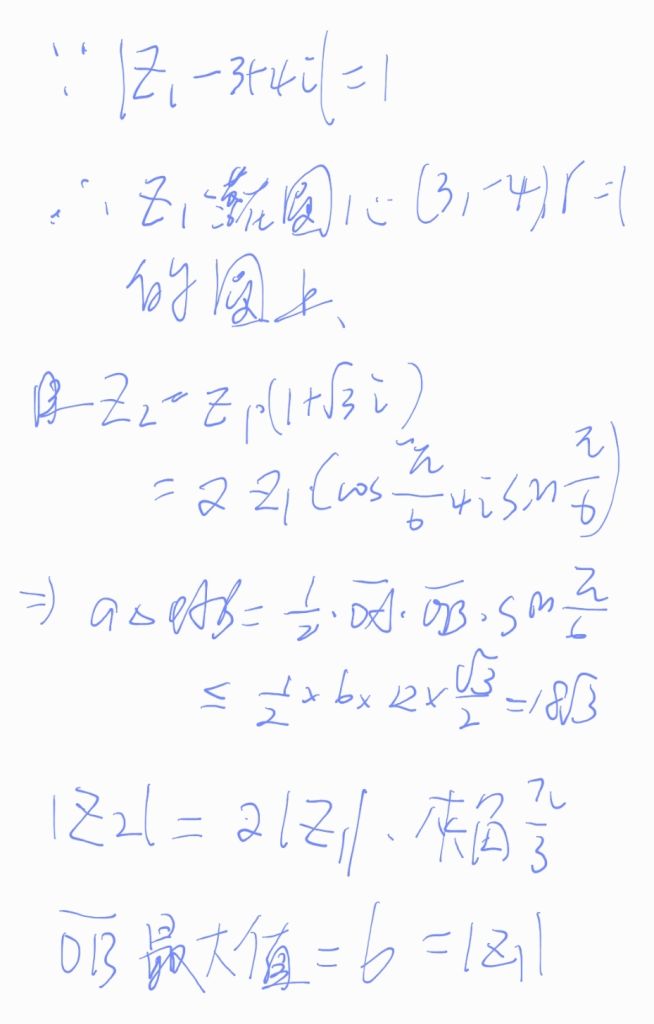 ∵ |Z₁-3+4i|=1
∴ Z₁落在圓心(3,-4) r=1
的圓上、
且 Z₂=Z₁·(1+√3i)
=2Z₁(cos π/6+i sin π/6)
⇒ a△OAB=1/2·OA·OB·sin π/6
≤ 1/2×6×12×√3/2=18√3
|Z₂|=2|Z₁|、夾角 π/3
OB最大值=6=|Z₁|